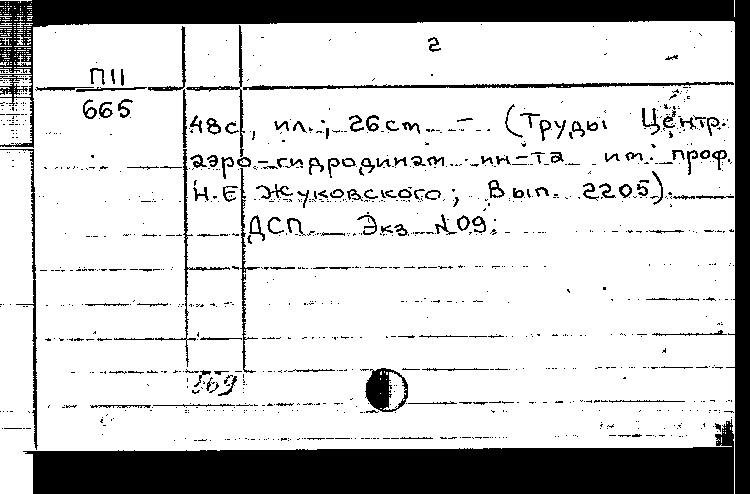 2
П11
665
48с., ил.; 26см. – (Труды Центр.
аэро-гидродинам. ин-та им. проф.
Н.Е. Жуковского; Вып. 2205).
ДСП. Экз №09.